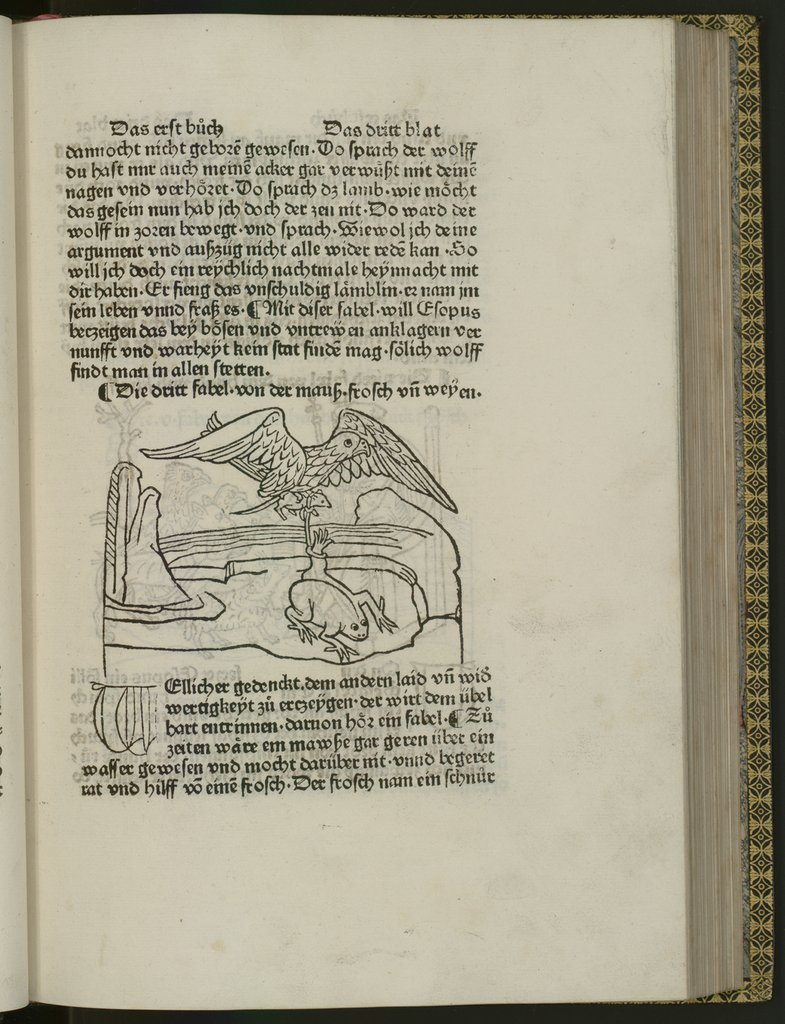 Das erst bůch Das dritt blat
dannocht nicht geborē gewesen. Do sprach der wolff
du hast mir auch meinē acker gar verwůßt mit deinē
nagen vnd verhöret. Do sprach dz lamb. wie möcht
das gesein nun hab jch doch der zen nit. Do ward der
wolff in zoren bewegt. vnd sprach. Wiewol jch deine
argument vnd außzüg nicht alle wider redē kan. So
will jch doch ein reÿchlich nachtmale heÿnnacht mit
dir haben. Er fieng das vnschuldig lämblin. er nam jm
sein leben vnnd fraß es. ¶ Mit diser fabel will Esopus
betzeigen das beÿ bösen vnd vntrewen anklagern ver
nunfft vnd warheÿt kein stat findē mag. sölich wolff
findt man in allen stetten.
¶ Die dritt fabel. von der mauß. frosch vñ weÿen.
WEllicher gedenckt. dem andern laid vñ wid
wertigkeÿt zů ertzeÿgen. der wirt dem übel
hart entrinnen. daruon hör ein fabel. ¶ Zů
zeiten wäre ein mawße gar geren über ein
wasser gewesen vnd mocht darüber nit. vnnd begeret
rat vnd hilff vō einē frosch. Der frosch nam ein schnůr